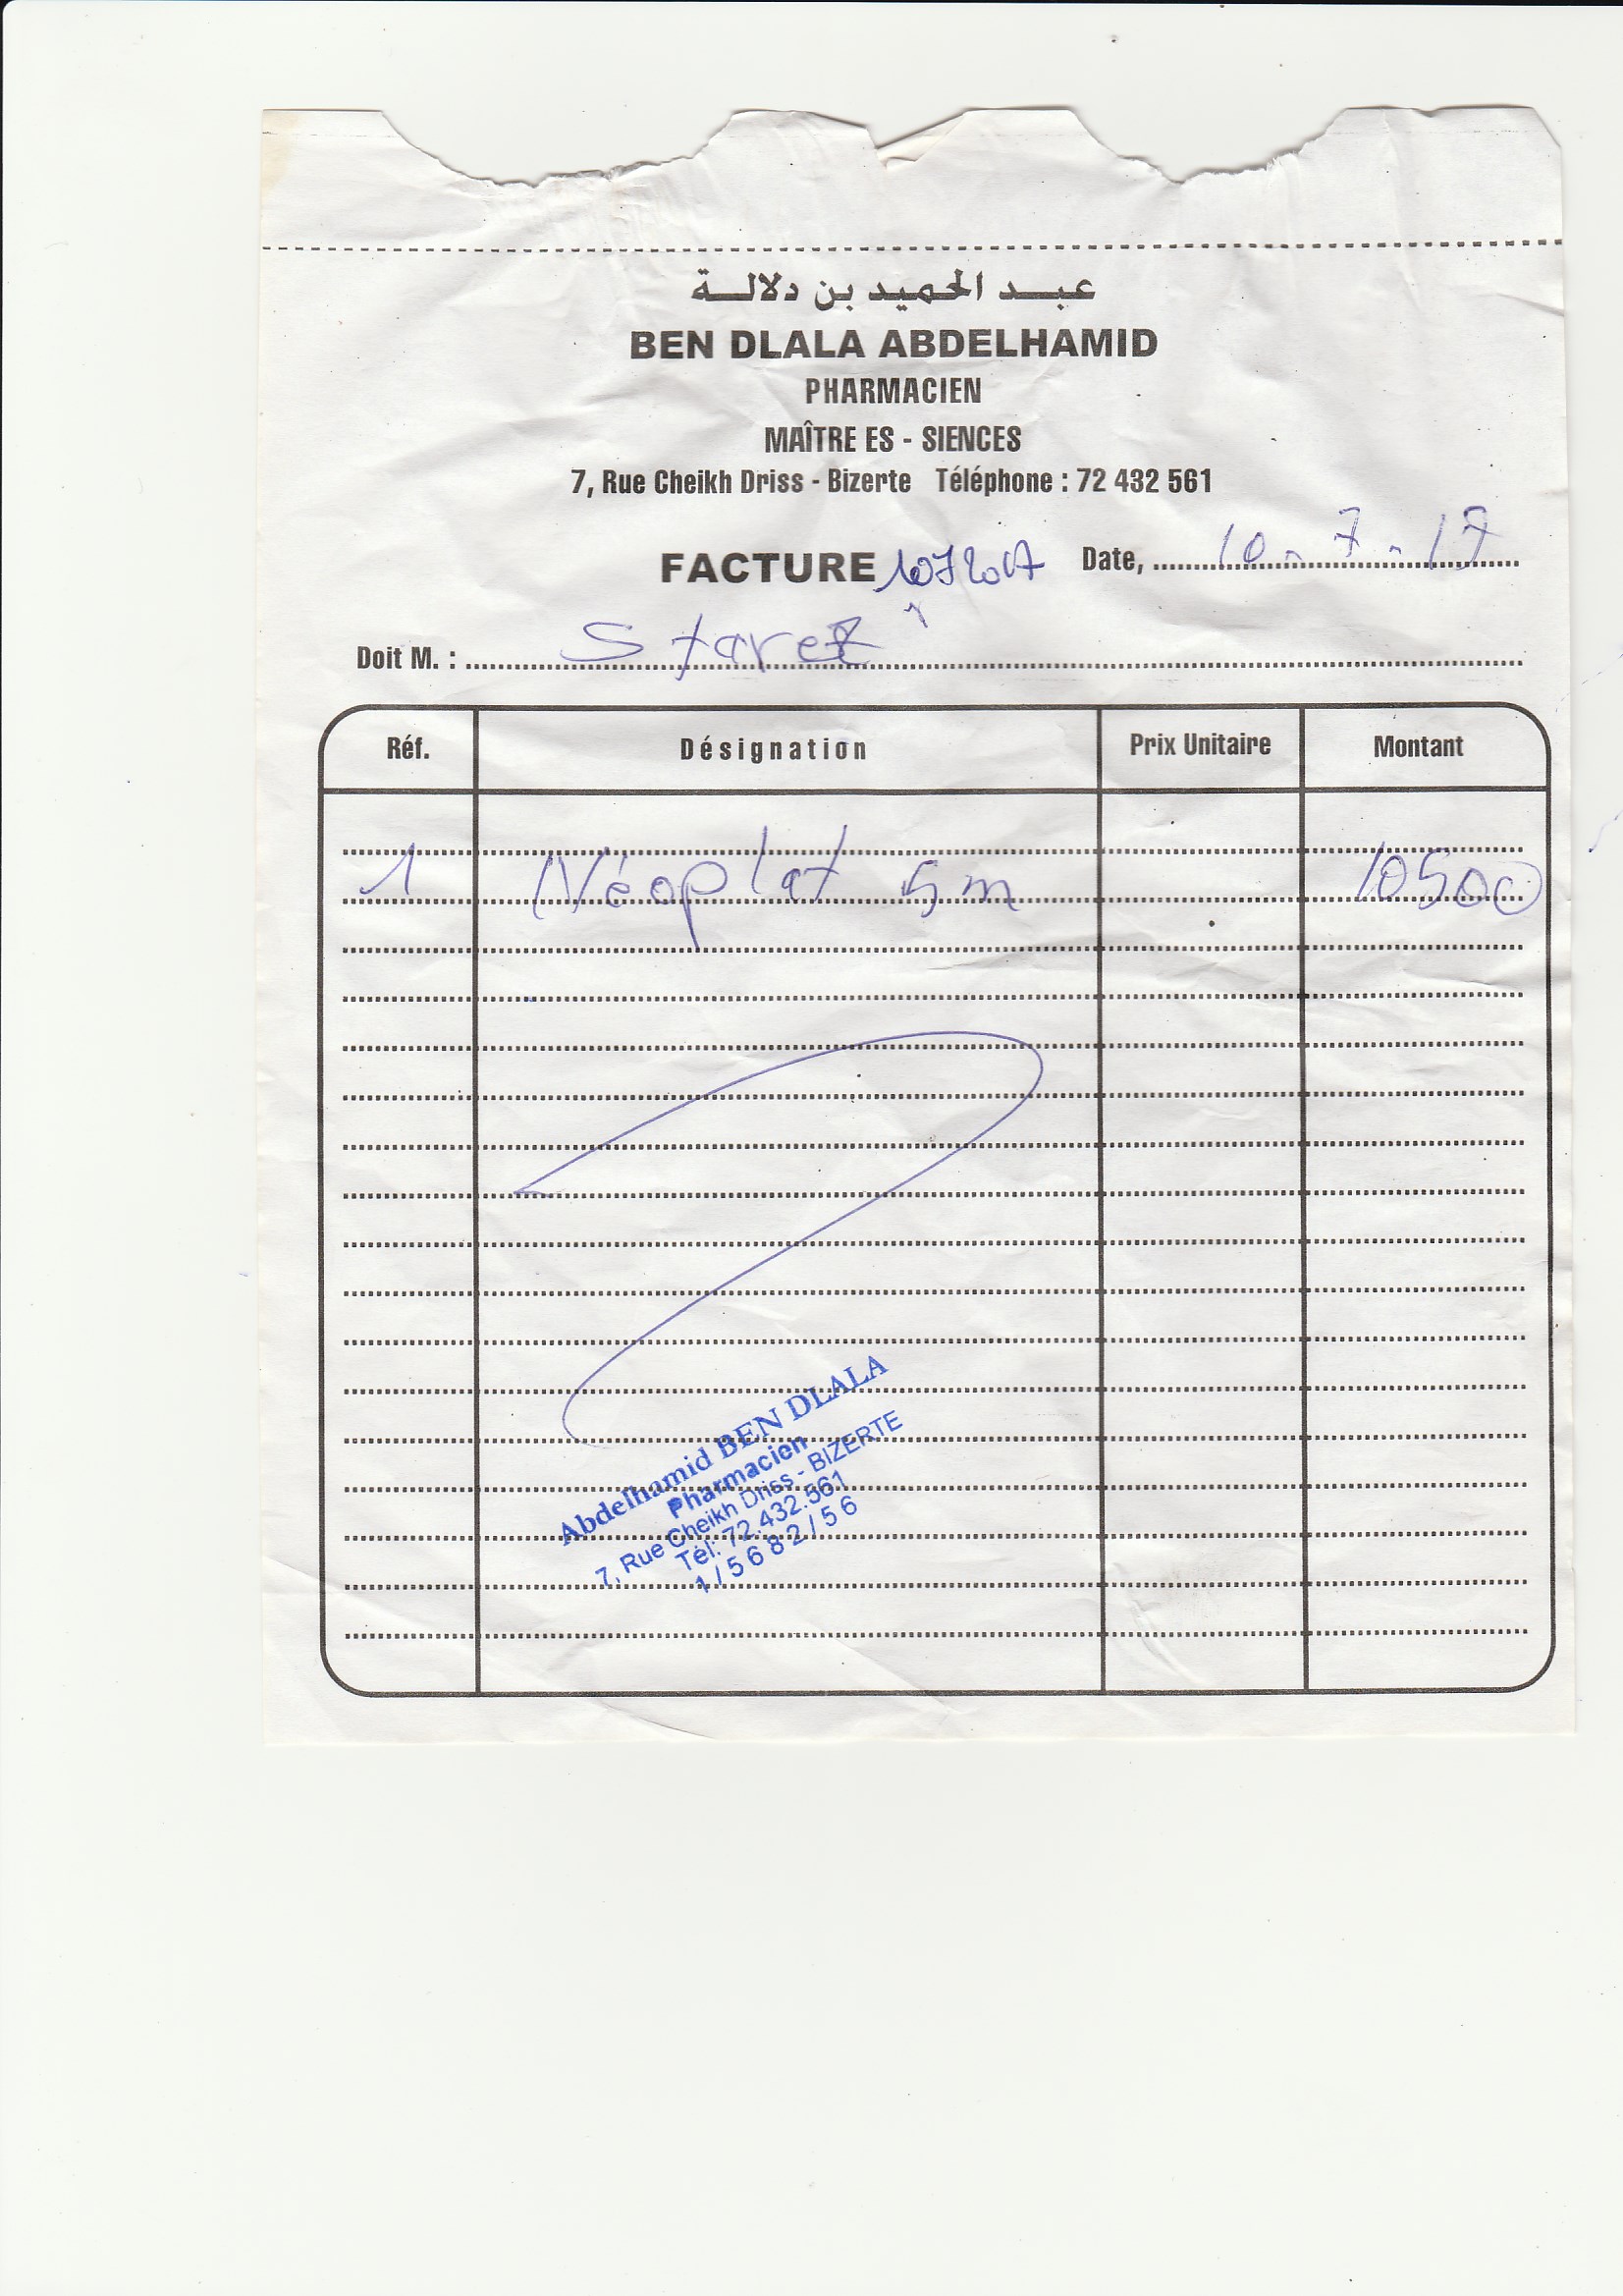 عبد الحميد بن دلالة
BEN DLALA ABDELHAMID
PHARMACIEN
MAÎTRE ES - SIENCES
7, Rue Cheikh Driss - Bizerte Téléphone : 72 432 561
FACTURE 1072017 Date, 10 - 7 - 17
Doit M. : Starez
Réf. Désignation Prix Unitaire Montant
1 Néoplat 5m 10500
Abdelhamid BEN DLALA
Pharmacien
7, Rue Cheikh Driss - BIZERTE
Tél: 72.432.561
1/5682/56